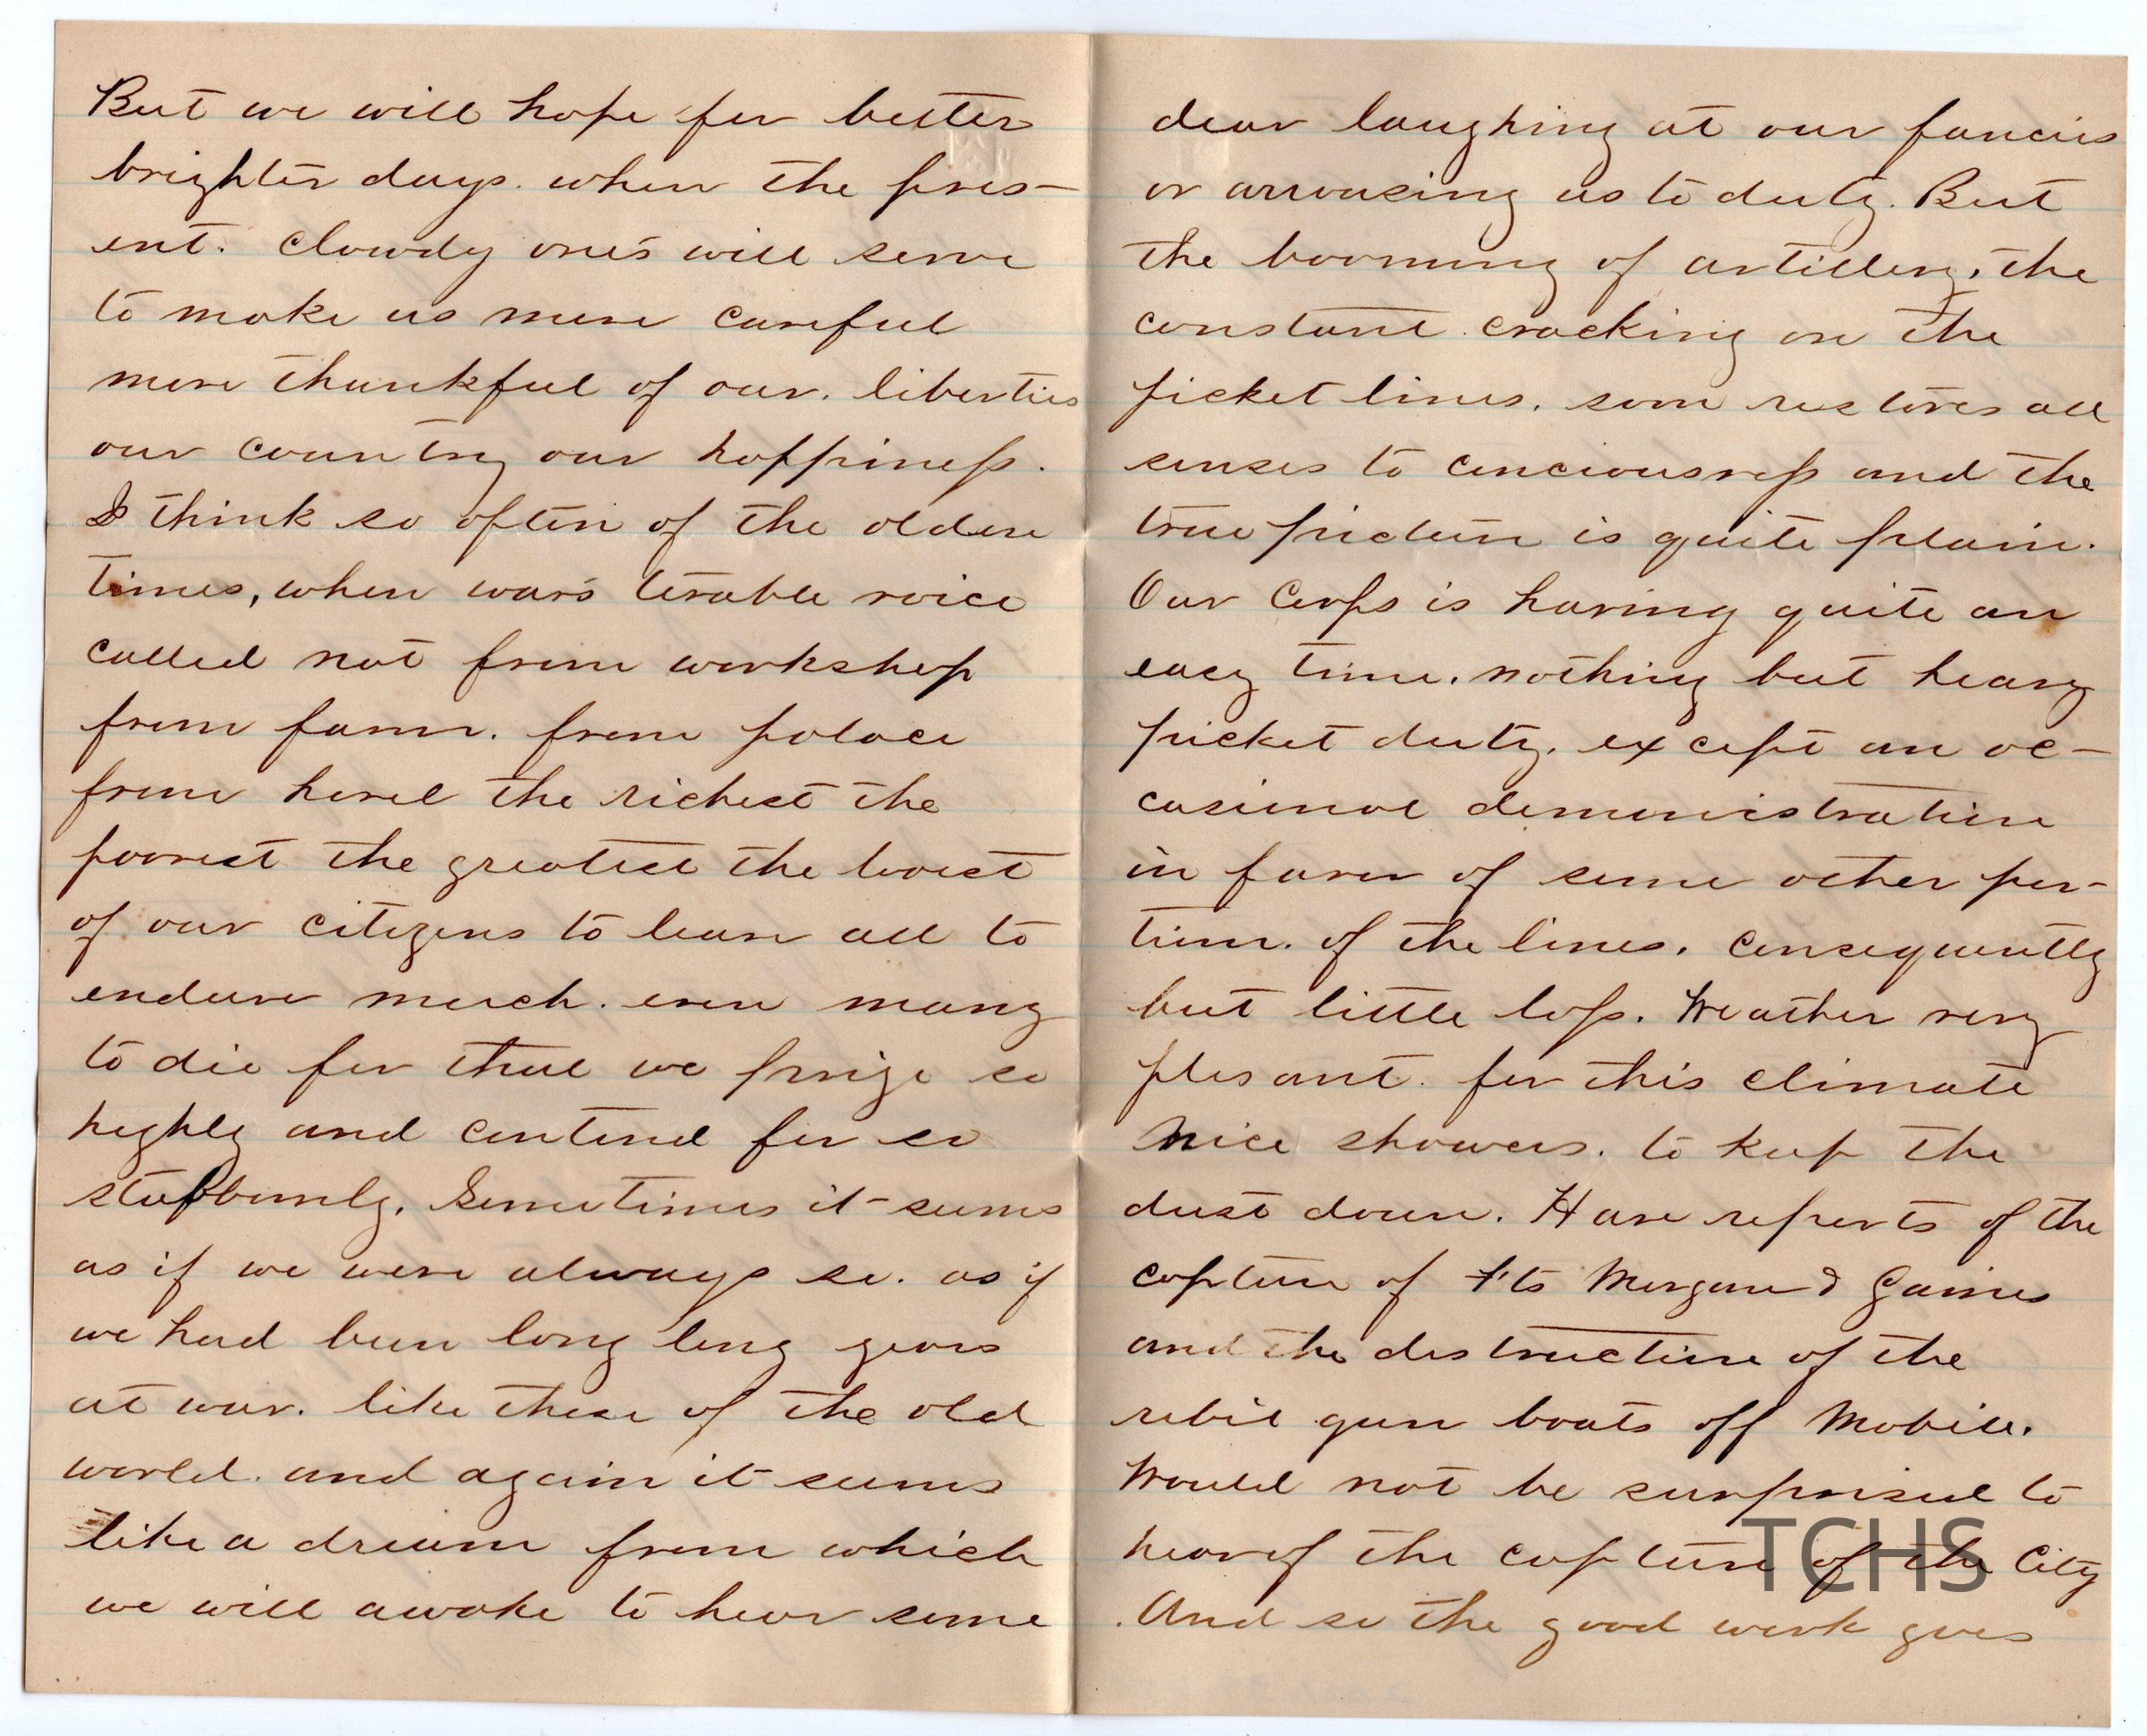 But we will hope for better
brighter days. when the pres-
ent. clowdy one's will serve
to make us more careful
more thankful of our. liberties
our country our happiness.
I think so often of the olden
times, when war's terable voice
called not from workshop
from farm. from palace
from hovel the richest the
poorest the greatest the lovest
of our citizens to leave all to
endure much. even many
to die for that we prize so
highly and contend for so
stubbornly. Sometimes it seems
as if we were always so. as if
we had been long long years
at war. like those of the old
world. and again it seems
like a dream from which
we will awake to hear some
dear laughing at our fancies
or arrousing us to duty. But
the booming of artillery, the
constant cracking on the
picket lines. soon restores all
senses to conciousness and the
true picture is quite plain.
Our Corps is having quite an
easy time. nothing but heavy
picket duty. except an oc-
casional demonistration
in favor of some other por-
tion. of the lines. consequently
but little loss. Weather very
plesant. for this climate
Nice showers. to keep the
dust down. Have reports of the
capture of F'ts Morgan & Gaines
and the destruction of the
rebil gun boats off Mobile.
Would not be surprised to
hear of the capture of the City
. And so the good work goes
TCHS